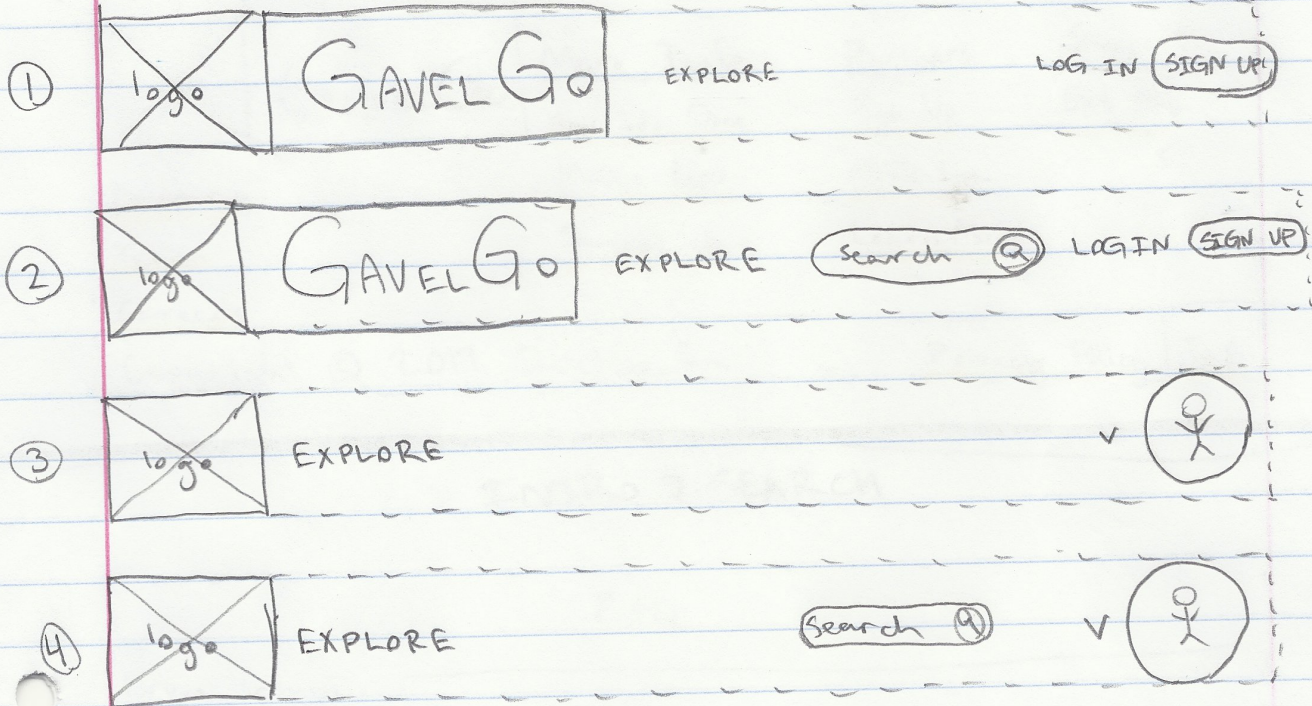 1 logo GAVEL GO EXPLORE LOG IN SIGN UP!
2 logo GAVEL GO EXPLORE Search LOGIN SIGN UP
3 logo EXPLORE V
4 logo EXPLORE Search V